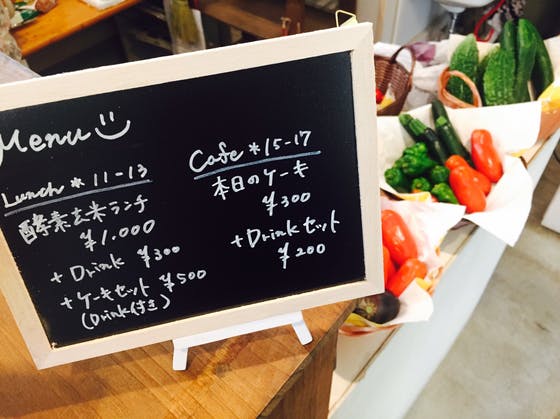 Menu
Lunch * 11-13
酵素玄米ランチ
¥1,000
+ Drink ¥300
+ ケーキセット ¥500
(Drink付き)
Cafe * 15-17
本日のケーキ
¥300
+ Drinkセット
¥200